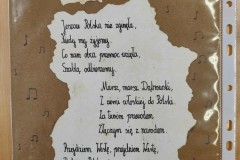 Jeszcze Polska nie zginęła,
Kiedy my żyjemy.
Co nam obca przemoc wzięła,
Szablą odbierzemy.
Marsz, marsz, Dąbrowski,
Z ziemi włoskiej do Polski.
Za twoim przewodem
Złączym się z narodem.
Przejdziem Wisłę, przejdziem Wartę,